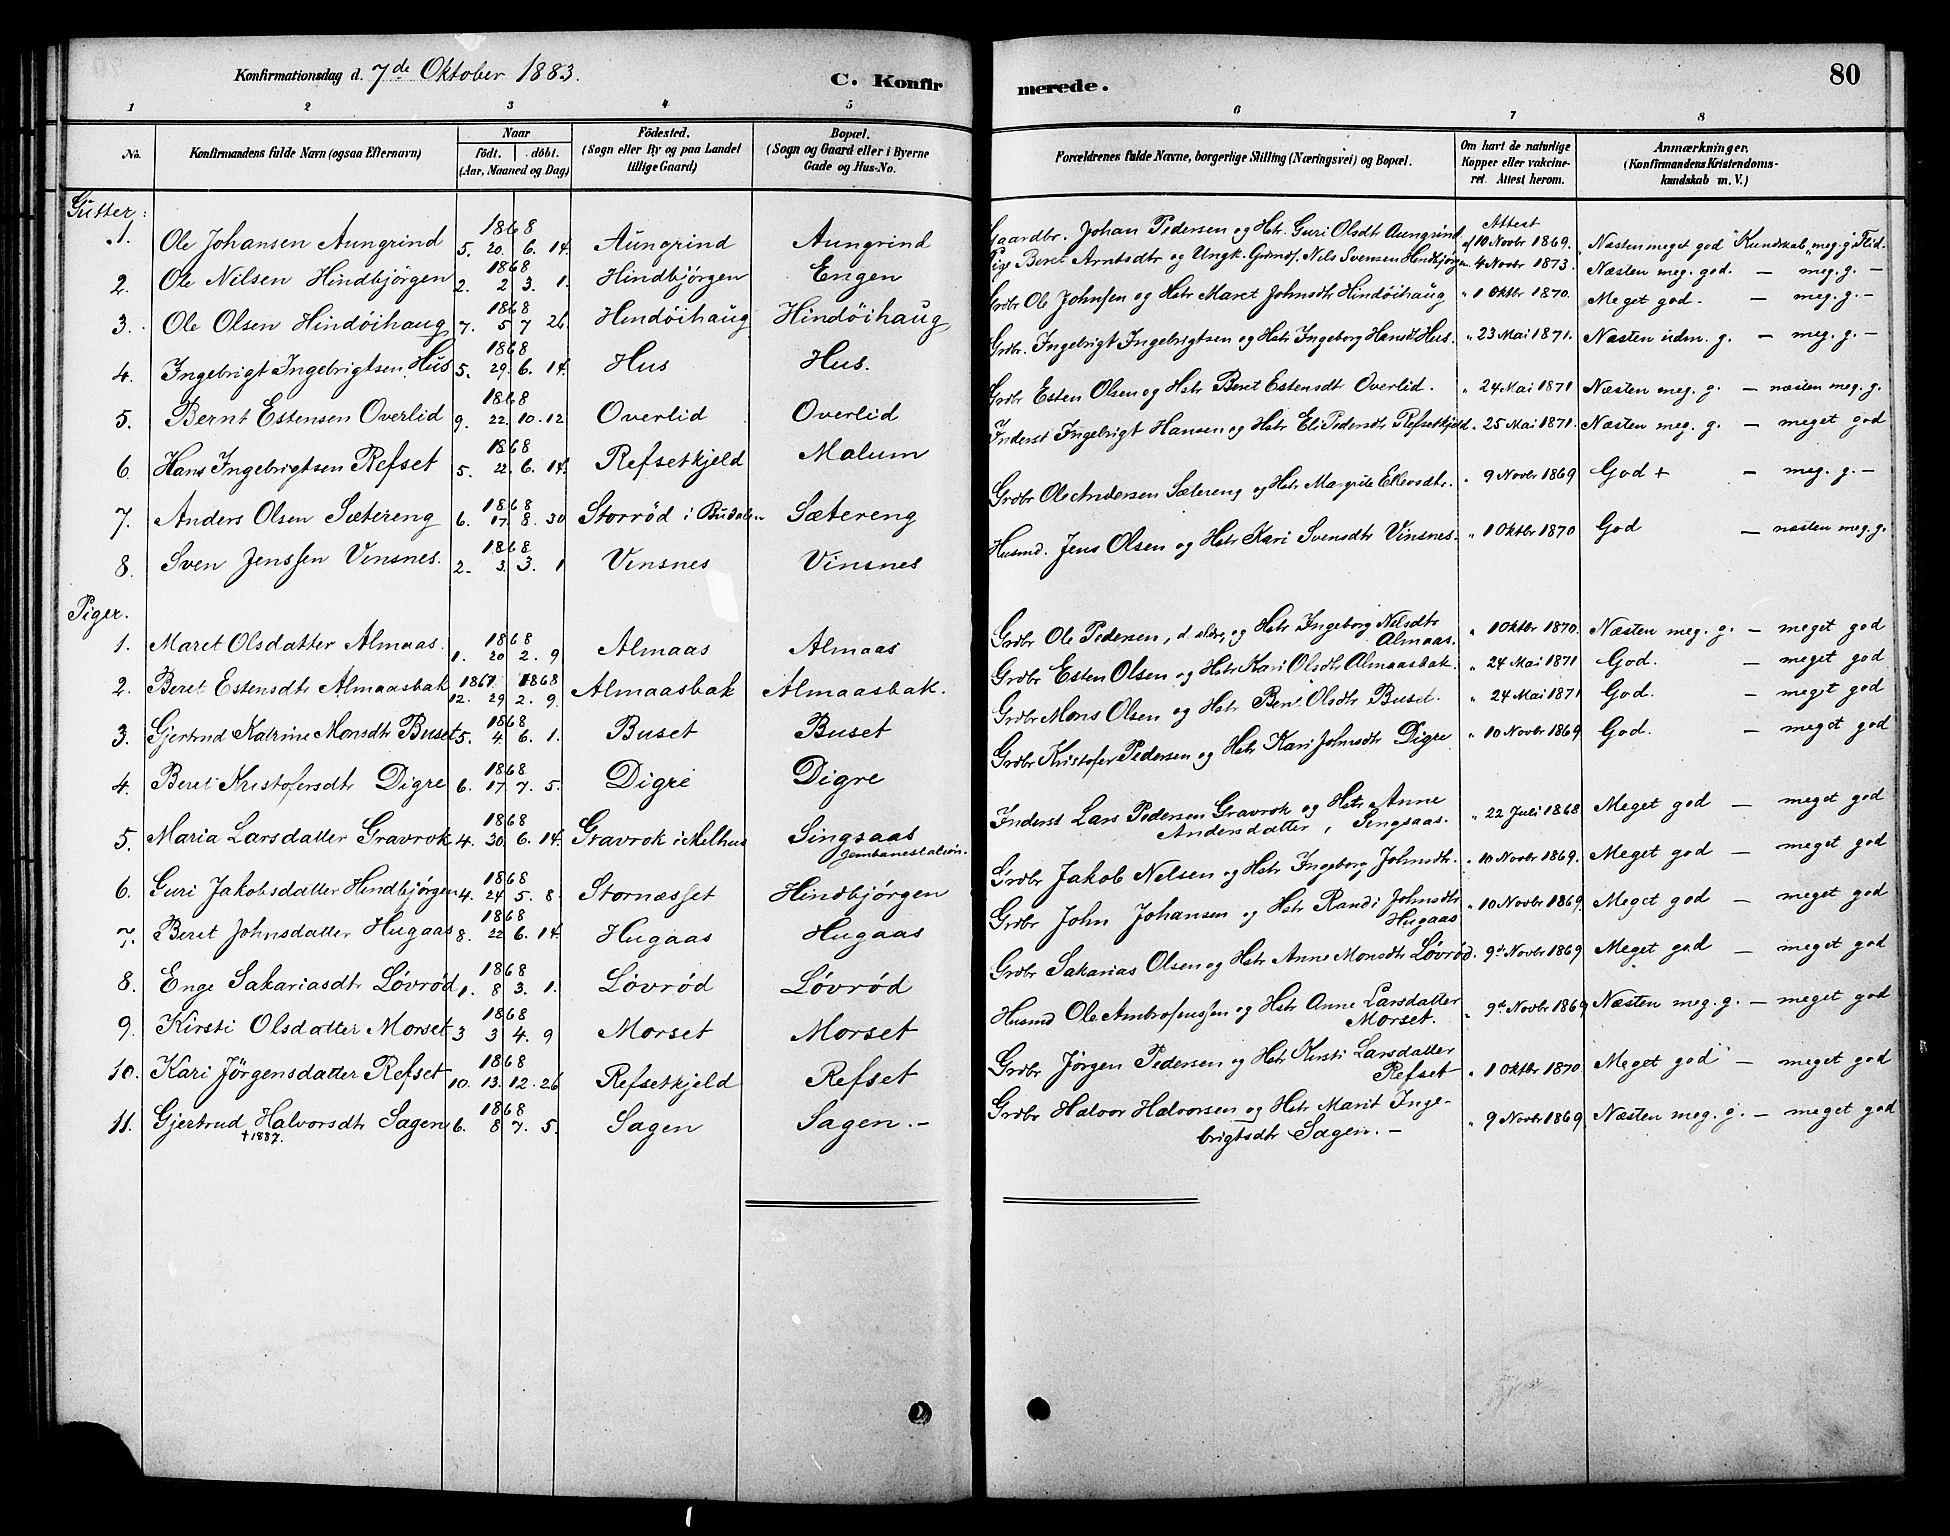 Konfirmationsdag d. 7de Oktober 1883.
C. Konfirmerede.
80
1 2 3 4 5 6 7 8
No.
Konfirmandens fulde Navn (ogsaa Efternavn)
Naar
födt. döbt.
(Aar, Maaned og Dag)
Födested.
(Sogn eller By og paa Landet
tillige Gaard)
Bopæl.
(Sogn og Gaard eller i Byerne
Gade og Hus-No.
Forældrenes fulde Navne, borgerlige Stilling (Næringsvei) og Bopæl.
Om havt de naturlige
Kopper eller vakcine-
ret. Attest herom.
Anmærkninger.
(Konfirmandens Kristendoms-
kundskab m. V.)
Gutter:
1. Ole Johansen Aungrind 1868 5. 20. 6. 14. Aungrind Aungrind Gaardbr. Johan Pedersen og Hstr. Guri Olsdt Aungrind Attest af 10 Novbr 1869. "Næsten meget god" Kundskab "meg. g." Flid.
2. Ole Nilsen Hindbjörgen 1868 2. 2 3. 1. Hindbjörgen Engen Pige Beret Arntsdtr og Ungk. Grdmsf. Nils Svensen Hindbjörgen " 4 Novbr 1873. Næsten meg. god. — meg. g. —
3. Ole Olsen Hindöihaug 1868 7. 5 7 26 Hindöihaug Hindöihaug Grdbr Ole Johnsen og Hstr Maret Johnsdtr Hindöihaug " 1 Oktbr 1870. Meget god. — meg. g. —
4. Ingebrigt Ingebrigtsen Hus 1868 5. 29. 6. 14. Hus Hus. Grdbr. Ingebrigt Ingebrigtsen og Hstr Ingeborg Hansdt Hus. " 23 Mai 1871. Næsten udm. g. — meg. g. —
5. Bernt Estensen Overlid 1868 9. 22. 10. 12 Overlid Overlid Grdbr Esten Olsen og Hstr Beret Estensdt Overlid. " 24 Mai 1871 Næsten meg. g. — næsten meg. g.
6. Hans Ingebrigtsen Refset 1868 5. 2. 6. 14. Refsetkjeld Malum Inderst Ingebrigt Hansen og Hstr Eli Pedersdtr Refsetkjeld " 25 Mai 1871. Næsten meg. g. — meget god
7. Anders Olsen Sætereng 1868 6. 17. 8. 30 Storrød i Budalen Sætereng Grdbr Ole Andersen Sætereng og Hstr Margrite Ellevsdtr. " 9 Novbr 1869 God + — meg. g. —
8. Sven Jenssen Vinsnes. 1868 2. 3. 3. 1 Vinsnes Vinsnes Husmd. Jens Olsen og Hstr Kari Svensdtr Vinsnes. " 1 Oktbr 1870 God — næsten meg. g.
Piger.
1. Maret Olsdatter Almaas. 1868 1. 20 2. 9 Almaas Almaas Grdbr Ole Pedersen, d. eldre, og Hstr Ingeborg Nilsdtr Almaas. " 1 Oktbr 1870. Næsten meg. g. — meget god
2. Beret Estensdtr Almaasbak 1867 1868 12. 29 2. 9. Almaasbak Almaasbak. Grdbr Esten Olsen og Hstr Kari Olsdtr Almaasbak. " 24 Mai 1871 God. — meget god
3. Gjertrud Katrine Monsdtr Buset 1868 5. 4. 6. 1. Buset Buset Grdbr Mons Olsen og Hstr Berit Olsdtr Buset. " 24 Mai 1871 God. — meget god
4. Beret Kristofersdtr Digre 1868 6. 17. 7. 5. Digre Digre Grdbr Kristofer Pedersen og Hstr Kari Johnsdtr Digre " 10 Novbr 1869 God. — meget god
5. Maria Larsdatter Gravrok 1868 4. 30. 6. 14. Gravrok i Melhus Singsaas Jernbanestation. Inderst Lars Pedersen Gravrok og Hstr Anne Andersdatter, Singsaas. " 22 Juli 1868 Meget god — meget god
6. Guri Jakobsdatter Hindbjörgen 1868 4. 24 5. 8. Stornæsset Hindbjörgen Grdbr Jakob Nelsen og Hstr Ingeborg Johnsdtr. " 10 Novbr 1869. Meget god — meget god
7. Beret Johnsdatter Hugaas 1868 8. 22 6. 14. Hugaas Hugaas Grdbr John Johansen og Hstr Randi Johnsdtr Hugaas " 10 Novbr 1869. Meget god — meget god
8. Enge Sakariasdtr Lövröd 1868 1. 8 3. 1. Lövröd Lövröd Grdbr Sakarias Olsen og Hstr Anne Monsdtr Lövröd. " 9de Novbr 1869 Meget god — meget god
9. Kirsti Olsdatter Morset 1868 3 3 4. 9 Morset Morset Husmd Ole Ambrosiussen og Hstr Anne Larsdatter Morset. " 9de Novbr 1869 Næsten meg. g. — meget god
10. Kari Jörgensdatter Refset 1868 10. 13. 12. 26 Refsetkjeld Refset Grdbr Jörgen Pedersen og Hstr Kirsti Larsdatter Refset " 1 Oktbr 1870 Meget god — meget god
11. Gjertrud Halvorsdtr Sagen 1868 6. 8 7. 5. Sagen Sagen. — Grdbr Halvor Halvorsen og Hstr Marit Inge-
† 1887. brigtsdtr Sagen. — " 9 Novbr 1869 Næsten meg. g. — meget god